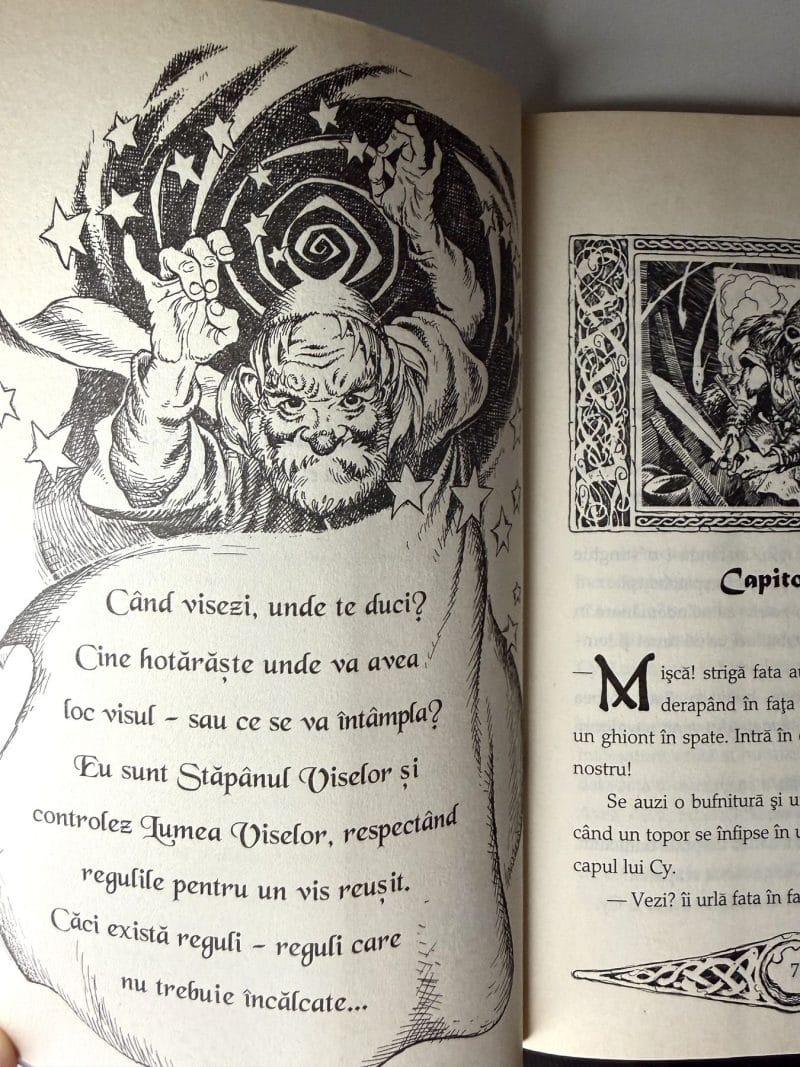 Când visezi, unde te duci?
Cine hotărăște unde va avea
loc visul – sau ce se va întâmpla?
Eu sunt Stăpânul Viselor și
controlez Lumea Viselor, respectând
regulile pentru un vis reușit.
Căci există reguli – reguli care
nu trebuie încălcate...
— Mişcă! strigă fata
derapând în faţa
un ghiont în spate. Intră în
nostru!
Se auzi o bufnitură şi
când un topor se înfipse în
capul lui Cy.
— Vezi? îi urlă fata în
7